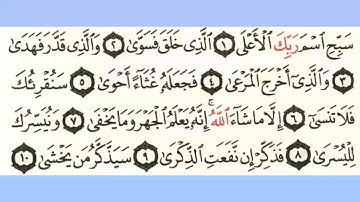 سَبِّحِ اسْمَ رَبِّكَ الْأَعْلَى ١ الَّذِي خَلَقَ فَسَوَّىٰ ٢ وَالَّذِي قَدَّرَ فَهَدَىٰ
٣ وَالَّذِي أَخْرَجَ الْمَرْعَىٰ ٤ فَجَعَلَهُ غُثَاءً أَحْوَىٰ ٥ سَنُقْرِئُكَ
فَلَا تَنسَىٰ ٦ إِلَّا مَا شَاءَ اللَّهُ ۚ إِنَّهُ يَعْلَمُ الْجَهْرَ وَمَا يَخْفَىٰ ٧ وَنُيَسِّرُكَ
لِلْيُسْرَىٰ ٨ فَذَكِّرْ إِن نَّفَعَتِ الذِّكْرَىٰ ٩ سَيَذَّكَّرُ مَن يَخْشَىٰ ١٠